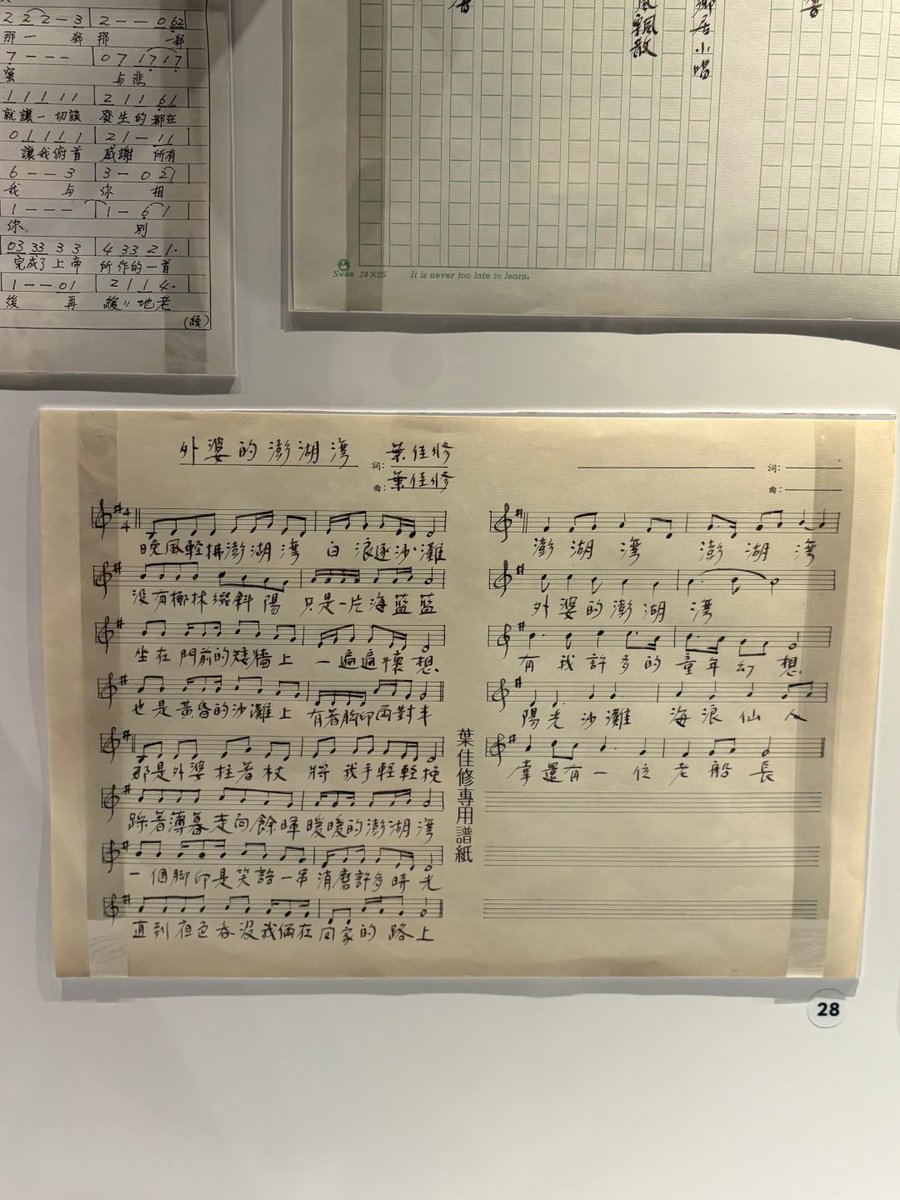 2 2 2 - 3 2 - - 0 62
那 一 鄰 那 鄰
7 - - - 0 7 1 7 1 7
蜜 与悲
1 1 1 1 1 2 1 1 6 1
就讓一切該 發生的都在
0 1 1 1 1 2 1 - 1 1
讓我俯首 感謝 所有
6 - - 3 3 - 0 2 1
我 与 你 相
1 - - - 1 - 6 1
你、 別
03 33 3 3 4 33 2 1.
完成了上帝 所作的一首
1 - - 01 2 1 1 4.
後 再 緩〃地老
(續)
風飄散
鄉居小唱
Swan 24×25 It is never too late to learn.
外婆的澎湖灣 詞: 葉佳修
曲: 葉佳修
晚風輕拂澎湖灣 白浪逐沙灘
沒有椰林綴斜陽 只是一片海藍藍
坐在門前的矮牆上 一遍遍懷想
也是黃昏的沙灘上 有著腳印兩對半
那是外婆拄著杖 將我手輕輕挽
踩著薄暮走向餘暉 暖暖的澎湖灣
一個腳印是笑語一串 消磨許多時光
直到夜色吞沒我倆在回家的路上
葉佳修專用譜紙
詞:
曲:
澎湖灣 澎湖灣
外婆的澎湖灣
有我許多的童年幻想
陽光沙灘 海浪仙人
掌還有一位老船長
28